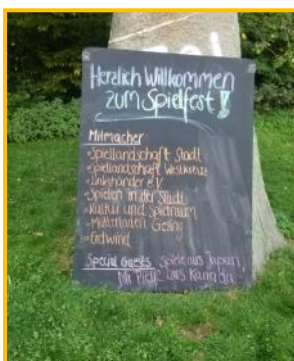 Herzlich Willkommen
zum Spielfest!
Mitmacher:
-Spiellandschaft Stadt
-Spiellandschaft Westkreuz
-Linkshänder e.V.
-Spielen in der Stadt
-Kultur und Spielraum
-Erdwind
Special Guests: Spiele aus Japan
aus Kanada